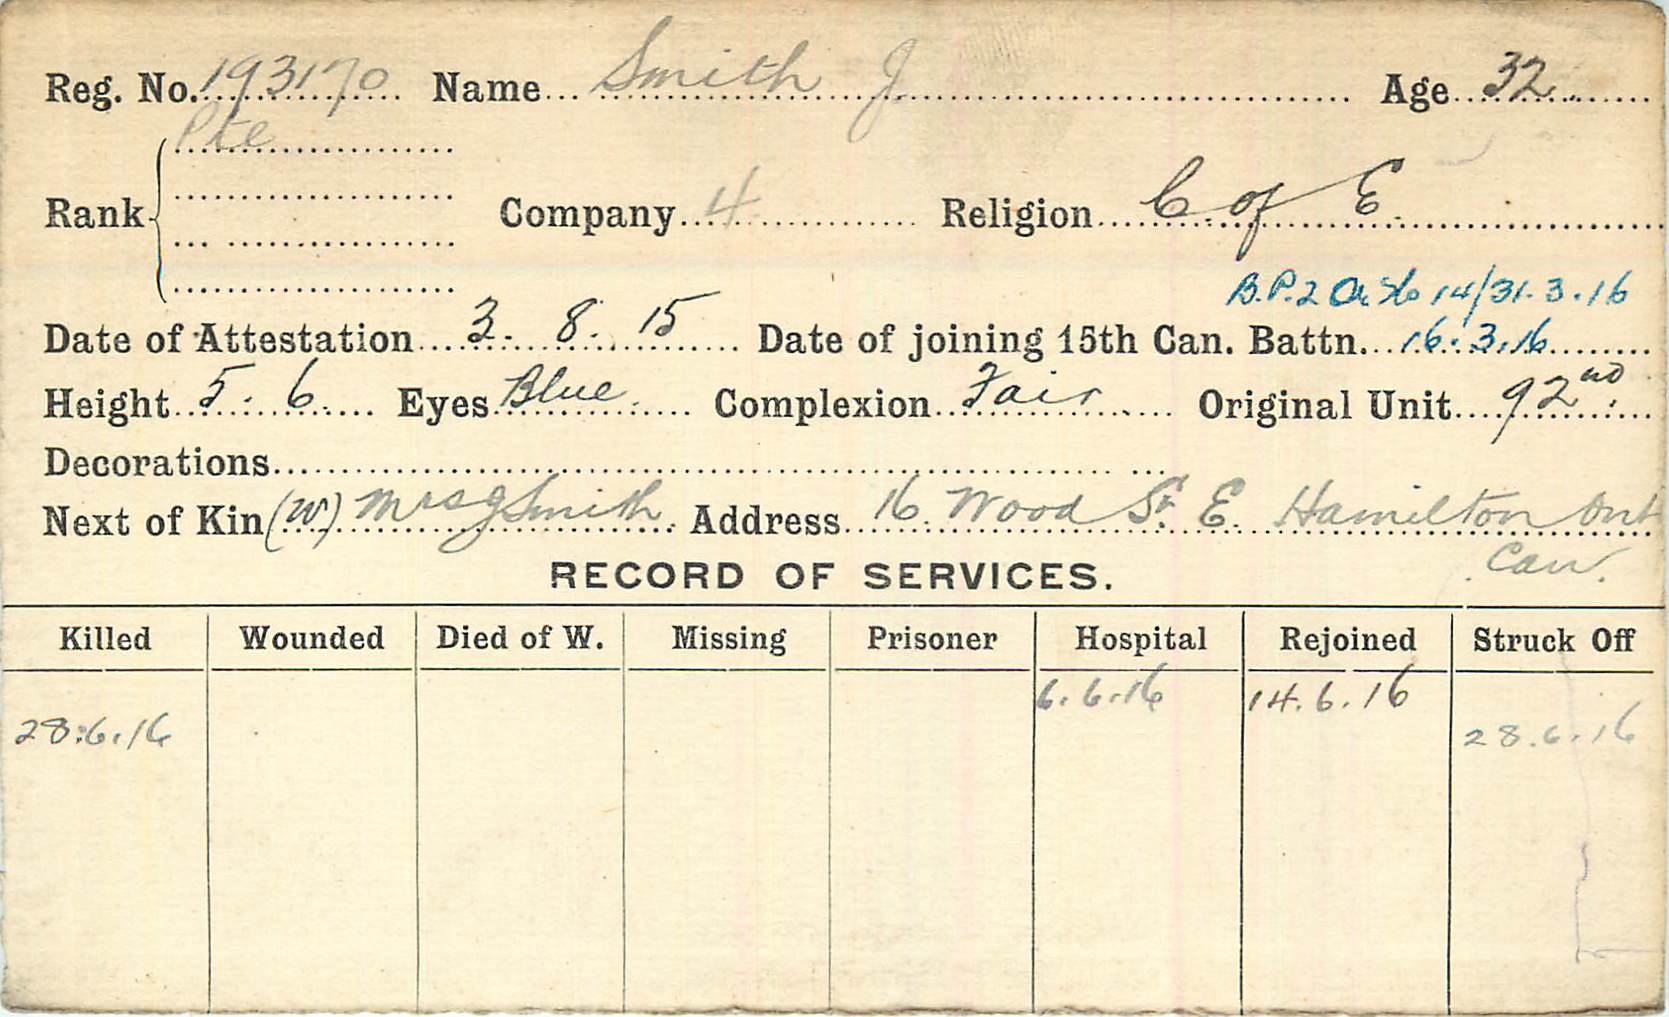 Reg. No. 193170 Name Smith J Age 32
Pte
Rank Company 4 Religion C of E.
B.P.2 14/31.3.16
Date of Attestation 3. 8. 15 Date of joining 15th Can. Battn. 16.3.16
Height 5. 6 Eyes Blue. Complexion Fair Original Unit 92nd
Decorations
Next of Kin (W) Mrs J Smith. Address 16 Wood St. E. Hamilton Ont
Can.
RECORD OF SERVICES.
Killed Wounded Died of W. Missing Prisoner Hospital Rejoined Struck Off
6.6.16 14.6.16
28.6.16 28.6.16